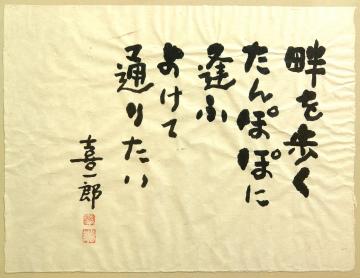 畔を歩く
たんぽぽに
逢ふ
よけて
通りたい
喜一郎